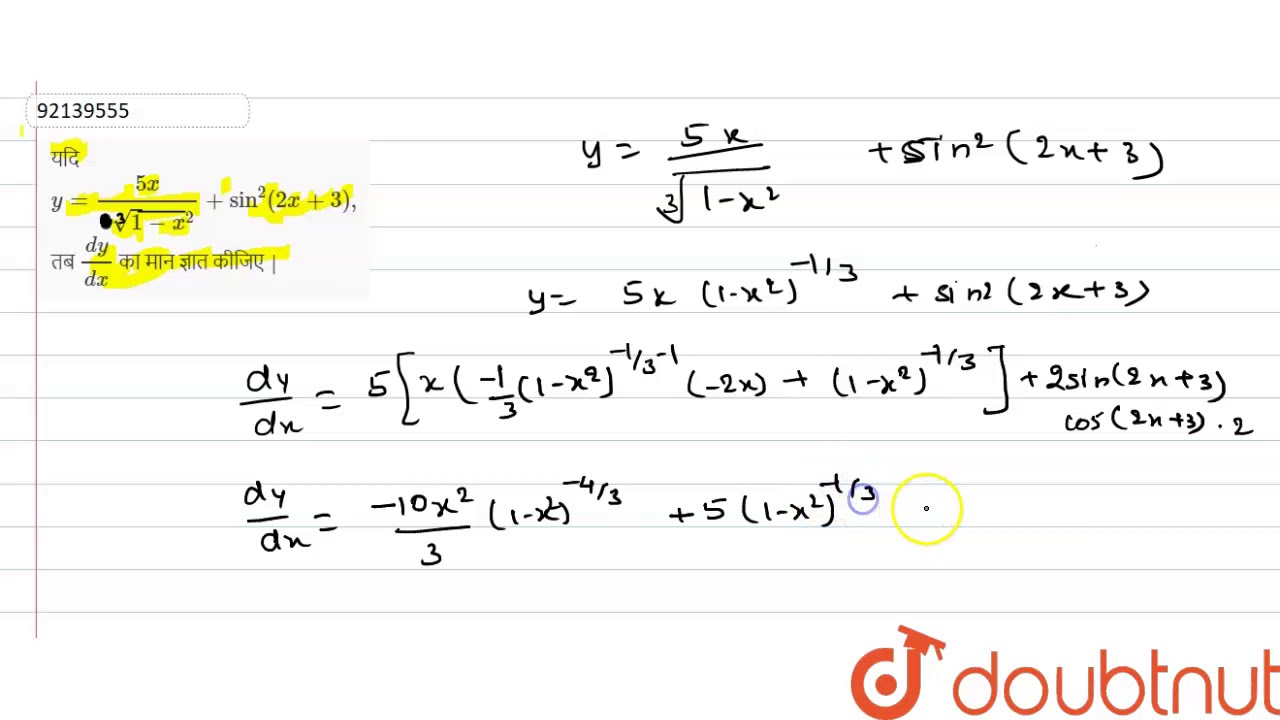 92139555
यदि
y = 5x / ∛(1 − x²) + sin²(2x + 3),
तब dy/dx का मान ज्ञात कीजिए |
y = 5x / ∛(1-x²) + sin²(2x+3)
y = 5x (1-x²)^(-1/3) + sin²(2x+3)
dy/dx = 5[x(-1/3(1-x²)^(-1/3-1) (-2x) + (1-x²)^(-1/3)] + 2sin(2x+3)
cos(2x+3) . 2
dy/dx = -10x²/3 (1-x²)^(-4/3) + 5(1-x²)^(-1/3)
doubtnut